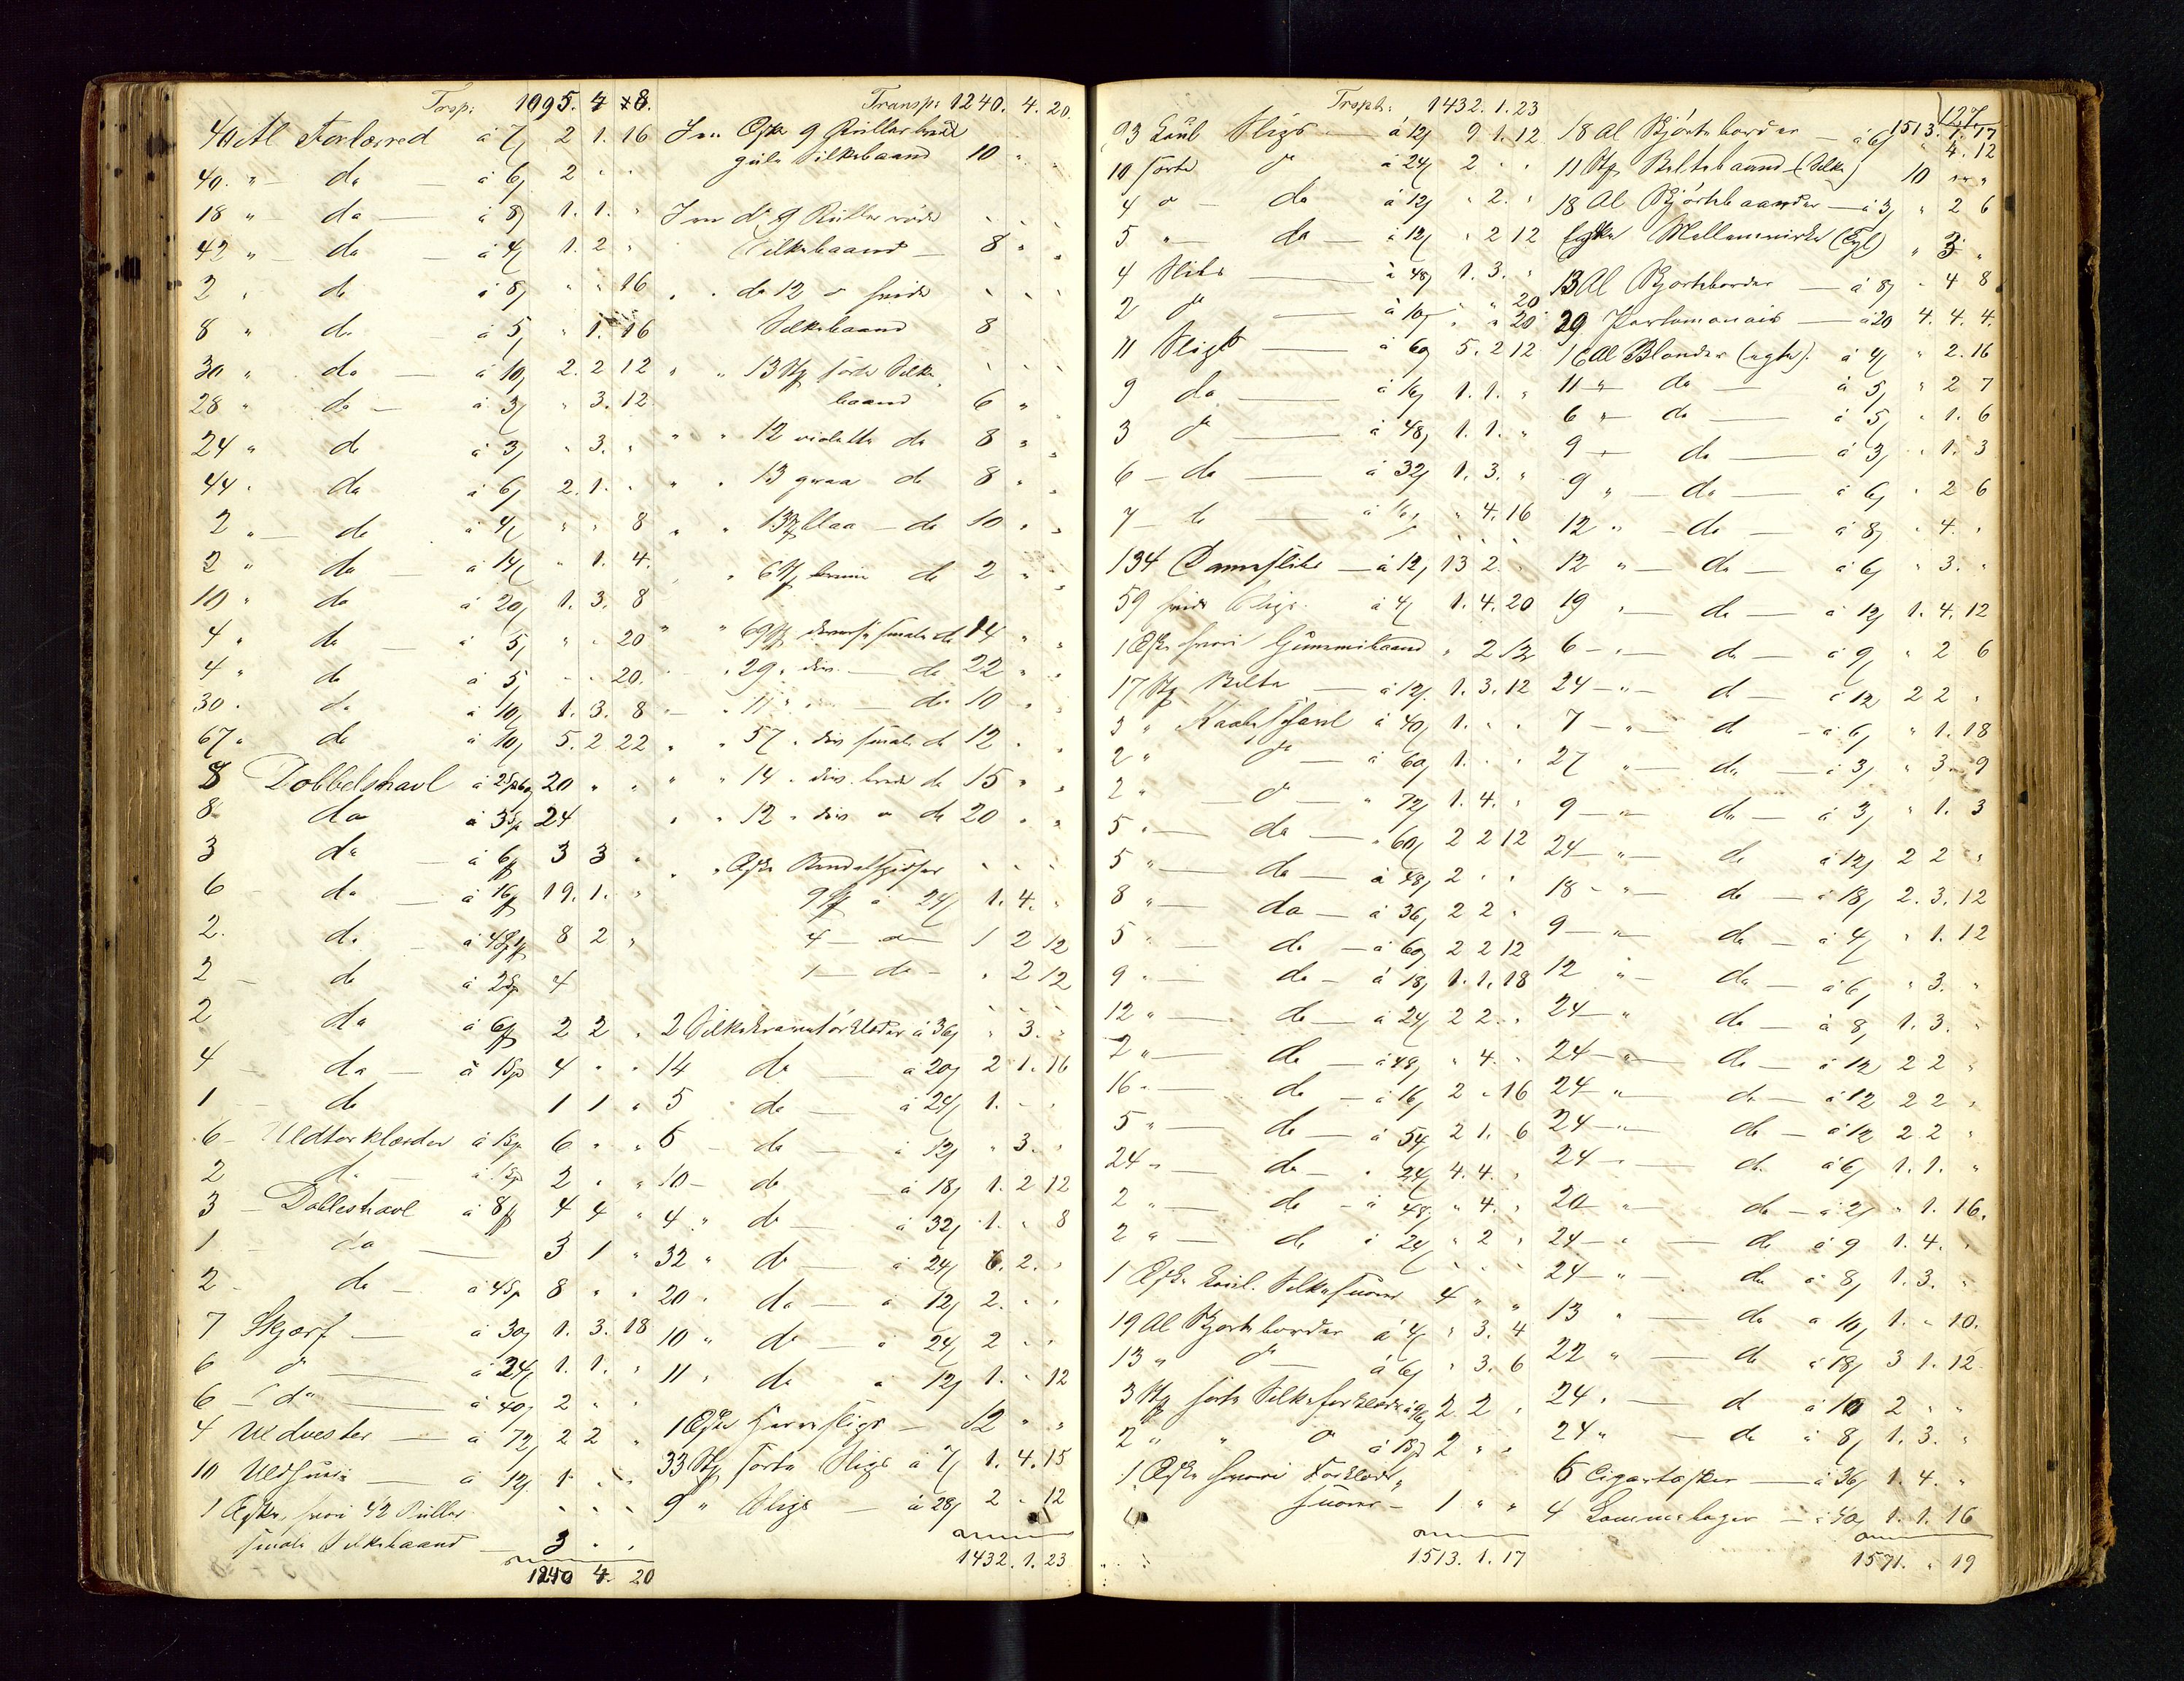 Trsp: 1095. 4 8.
40 Al Forlærred à 7/ 2 1. 16
40. " - do - à 6/ 2 " "
18 " - da - à 8/ 1. 1. "
42 " - do - à 4/ 1. 2 "
2 " do à 8/ " " 16
8 " do à 5/ " 1. 16
30 " do - à 10/ 2. 2 12
28 " do - à 3/ " 3. 12
24 " do à 3/ " 3. "
44 " da à 6/ 2. 1. "
2 " - do à 4/ " " 8
2 " da - à 14/ " 1. 4.
10 " do à 20/ 1. 3. 8
4 " do - à 5/ " " 20
4 " do à 5/ " " 20.
30 " do à 10/ 1. 3. 8
67 " do à 10/ 5. 2 22
8 Dobbelshavl 20 " "
8 da à 3 Sp 24
3 da - à 6 3 3 "
6 - da - à 16 19. 1. "
2. do - 8 2 "
2 - do à 2 Sp 4
2 da à 6 2 2 "
4 - da - à 1 Sp 4 " "
1 - do 1 1 "
6 - Uldtørklæder à 1 Sp 6 " "
2 do - à 1 Sp 2 " "
3 - Dobbleshavl à 8 4 4 "
1 - da - 3 1 "
2 - do - à 4 Sp 8 " "
7 Skjærf - à 30/ 1. 3. 18
6 do - à 24/ 1. 1. "
6 - do - à 40/ 2 " "
4 Uldvester - à 72/ 2 2 "
10 - à 12/ 1 " "
1 Æske, hvori 42 Ruller
smale Silkebaand - 3 " "
1240 4. 20
Transp: 1240. 4. 20.
Æske 9 Ruller brede
gule Silkebaand 10 " "
do 9 Ruller røde
Silkebaand - 8 " "
" " do 12 do hvide
Silkebaand 8
" " 13 sorte Silke
baand 6 " "
" " 12 violette do 8 " "
" " 13 graa do 8 " "
" " 13 blaa - do 10 " "
" " 6 brune do 2 " "
" " 69 diverse smale do 14 " "
" " 29 " div. - do 22 " "
" " 11 " " - do 10 " "
" " 57 " div smale do 12 " "
" " 14 " div. brede do 15 " "
" " 12 " div " do 20 " "
" " Æske
9 à 24/ 1. 4. "
4 - do - 1 2 12
1 - do - " 2 12
2 à 36/ " 3. "
14 do - à 20/ 2 1. 16
5 do - à 24/ 1. - "
6 - do - à 12/ " 3. "
10 - do - à 18/ 1. 2 12
4 " do - à 32/ 1. " 8
32 " do - à 24/ 6. 2. "
20 " da - à 12/ 2. " "
10 " do - à 24/ 2 " "
11 " do à 12/ 1. " 12
1 Æske Herreslips - 12 " "
33 sorte Slips à 7/ 1. 4. 15
9 " Slips - à 28/ 2 " 12
1432. 1. 23
Trspt: 1432. 1. 23
93 Slips - à 12/ 9 1. 12
10 sorte do à 24/ 2 " "
4 do - do à 12/ " 2. "
5 " - do - à 12/ " 2 12
4 Slips - à 48/ 1. 3. "
2 do - à 10/ " " 20
11 Slips - à 60/ 5. 2 12
9 do - à 16/ 1. 1. "
3 do - à 48/ 1. 1. "
6 - do - à 32/ 1. 3. "
7 - do - à 16/ " 4. 16
134 Dameslips - à 12/ 13 2. "
59 hvide Slips. à 4/ 1. 4. 20
1 Æske hvori Gummibaand " 2 12
17 Belte - à 12/ 1. 3. 12
3 " à 40/ 1. " "
2 " do - à 60/ 1. " "
2 " do - " 72/ 1. 4. "
5 " - da - " 60/ 2 2 12
5 " - da - à 48/ 2 " "
8 " - da - à 36/ 2 2 "
5 " - do - à 60/ 2 2 12
9 " - do - à 18/ 1. 1. 18
12 " - do - à 24/ 2 2. "
2 " - do - à 48/ " 4. "
16 " - do - à 16/ 2 " 16
5 " - do - à 54/ 2 1. 6
24 " - do - " 24/ 4. 4. "
2 " - do - à 48/ " 4. "
2 " - do à 24/ " 2 "
1 Æske Silkesnore 4 " "
19 Al Skjorteborder à 4/ " 3. 4
13 " do - à 6/ " 3. 6
3 sorte Silkeforklæder à 96/ 2 2 "
2 " " do à 1 Sp 2 " "
1 Æske hvori Forklæde
snore - 1 " "
1513. 1. 17
127
1513. 1. 17
18 Al Skjörteborder - à 6/ " 4. 12
11 Beltebaand (Silke) 10 " "
18 Al Skjörtebaander - à 3/ " 2 6
Æske " 3 "
13 Al Skjorteborder - à 8/ " 4 8
29 Portemonais - à 20 4. 4. 4.
16 Al Blonder (ægte). à 4/ " 2. 16
11 " do - à 5/ " 2 7
6 " - do - à 5/ " 1. 6
9 - do - à 3/ " 1. 3
9 " - do - à 6/ " 2 6
12 " - do - à 8/ " 4. "
12 " - do - à 6/ " 3. "
19 " - do - à 12/ 1. 4. 12
6 - " - do - à 9/ " 2 6
24 - " - do - à 12/ 2 2 "
7 - " - do - à 6/ " 1. 18
27 " - do - à 3/ " 3 9
9 - " - do - à 3/ " 1. 3
24 - " - do à 12/ 2 2 "
18 - " - do - à 18/ 2. 3. 12
9 - " - do - à 4/ " 1. 12
12 " - do - à 6/ " 3. "
24 - " do - à 8/ 1. 3. "
24 - " - do - à 12/ 2 2 "
24 - " - do - à 12 2 2 "
24 - " - do - à 12 2 2 "
24 - " - do à 6/ 1. 1. "
20 - " - do - à 2/ " 1. 16.
24 - " - do à 9 1. 4. "
24 - " - do à 8/ 1. 3. "
13 " - do à 10/ 1. " 10.
22 " - do à 18/ 3 1. 12
24 " - do à 10 2 " "
24 " - do à 8/ 1. 3. "
6 Cigartasker - à 36/ 1. 4. "
4 Lommebøger - à 40/ 1. 1. 16
1571. " 19